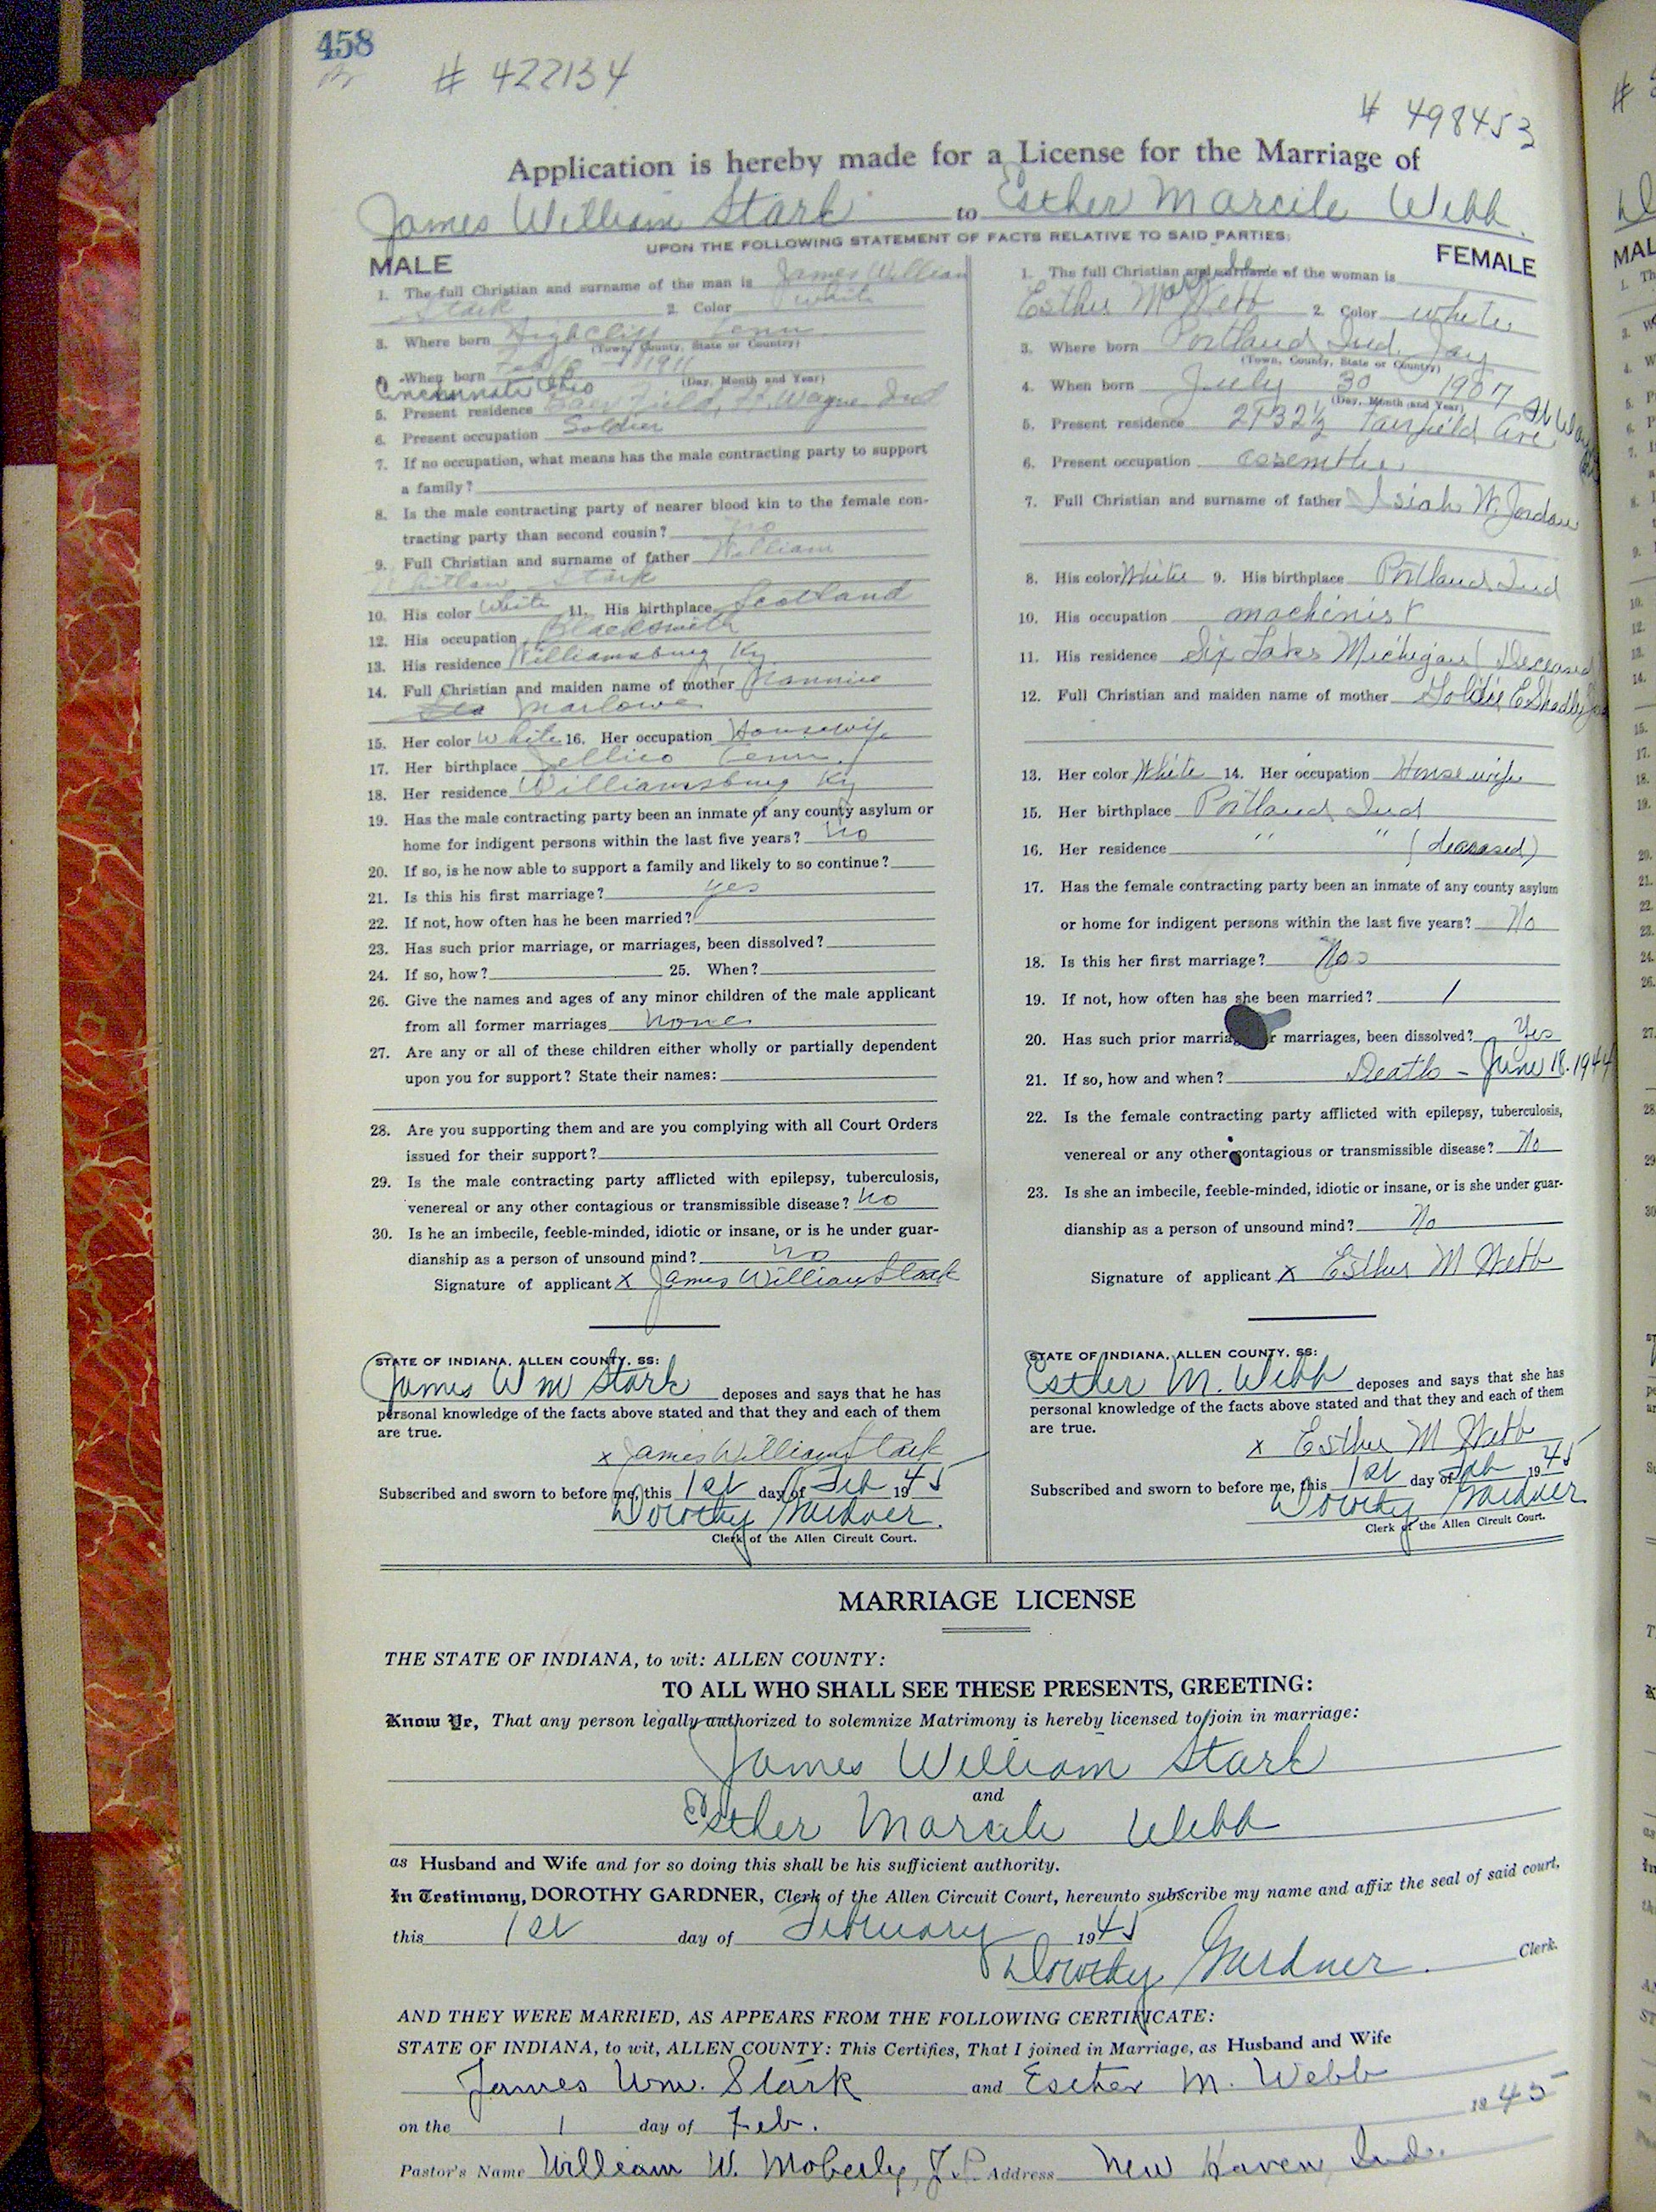 458
# 422134
# 498453
Application is hereby made for a License for the Marriage of
James William Stark to Esther Marcile Webb.
UPON THE FOLLOWING STATEMENT OF FACTS RELATIVE TO SAID PARTIES:
MALE
1. The full Christian and surname of the man is James William
Stark 2. Color white
3. Where born Highcliff Tenn
(Town, County, State or Country)
4. When born Feb 6 - 1911
(Day, Month and Year)
Cincinnati Ohio
5. Present residence Baer Field, Ft. Wayne Ind
6. Present occupation Soldier
7. If no occupation, what means has the male contracting party to support
a family?
8. Is the male contracting party of nearer blood kin to the female con-
tracting party than second cousin? no
9. Full Christian and surname of father William
Whitlaw Stark
10. His color White 11. His birthplace Scotland
12. His occupation Blacksmith
13. His residence Williamsburg Ky
14. Full Christian and maiden name of mother Nannie
Marlowe
15. Her color White 16. Her occupation Housewife
17. Her birthplace Jellico Tenn.
18. Her residence Williamsburg Ky
19. Has the male contracting party been an inmate of any county asylum or
home for indigent persons within the last five years? no
20. If so, is he now able to support a family and likely to so continue?
21. Is this his first marriage? yes
22. If not, how often has he been married?
23. Has such prior marriage, or marriages, been dissolved?
24. If so, how? 25. When?
26. Give the names and ages of any minor children of the male applicant
from all former marriages none
27. Are any or all of these children either wholly or partially dependent
upon you for support? State their names:
28. Are you supporting them and are you complying with all Court Orders
issued for their support?
29. Is the male contracting party afflicted with epilepsy, tuberculosis,
venereal or any other contagious or transmissible disease? no
30. Is he an imbecile, feeble-minded, idiotic or insane, or is he under guar-
dianship as a person of unsound mind? no
Signature of applicant x James William Stark
STATE OF INDIANA, ALLEN COUNTY, SS:
James Wm Stark deposes and says that he has
personal knowledge of the facts above stated and that they and each of them
are true.
x James William Stark
Subscribed and sworn to before me, this 1st day of Feb 1945
Dorothy Gardner.
Clerk of the Allen Circuit Court.
FEMALE
1. The full Christian and surname of the woman is
Esther M Webb 2. Color white
3. Where born Portland Ind. Jay
(Town, County, State or Country)
4. When born July 30 1907
(Day, Month and Year)
5. Present residence 2132½ Fairfield Ave Ft Wayne
6. Present occupation assembler
7. Full Christian and surname of father Isiah W. Jordan
8. His color White 9. His birthplace Portland, Ind
10. His occupation machinist
11. His residence Six Lakes Michigan (Deceased
12. Full Christian and maiden name of mother Goldie E Shadley
13. Her color White 14. Her occupation Housewife
15. Her birthplace Portland Ind
16. Her residence " " (deceased)
17. Has the female contracting party been an inmate of any county asylum
or home for indigent persons within the last five years? No
18. Is this her first marriage? No
19. If not, how often has she been married? 1
20. Has such prior marriage or marriages, been dissolved? Yes
21. If so, how and when? Death - June 18. 1944
22. Is the female contracting party afflicted with epilepsy, tuberculosis,
venereal or any other contagious or transmissible disease? No
23. Is she an imbecile, feeble-minded, idiotic or insane, or is she under guar-
dianship as a person of unsound mind? No
Signature of applicant x Esther M Webb
STATE OF INDIANA, ALLEN COUNTY, SS:
Esther M. Webb deposes and says that she has
personal knowledge of the facts above stated and that they and each of them
are true.
x Esther M Webb
Subscribed and sworn to before me, this 1st day of Feb 1945
Dorothy Gardner
Clerk of the Allen Circuit Court.
MARRIAGE LICENSE
THE STATE OF INDIANA, to wit: ALLEN COUNTY:
TO ALL WHO SHALL SEE THESE PRESENTS, GREETING:
Know Ye, That any person legally authorized to solemnize Matrimony is hereby licensed to join in marriage:
James William Stark
and
Esther Marcile Webb
as Husband and Wife and for so doing this shall be his sufficient authority.
In Testimony, DOROTHY GARDNER, Clerk of the Allen Circuit Court, hereunto subscribe my name and affix the seal of said court,
this 1st day of February 1945
Dorothy Gardner. Clerk.
AND THEY WERE MARRIED, AS APPEARS FROM THE FOLLOWING CERTIFICATE:
STATE OF INDIANA, to wit, ALLEN COUNTY: This Certifies, That I joined in Marriage, as Husband and Wife
James Wm. Stark and Esther M. Webb
on the 1 day of Feb. 1945
Pastor's Name William W. Moberly, J.P. Address New Haven, Ind.